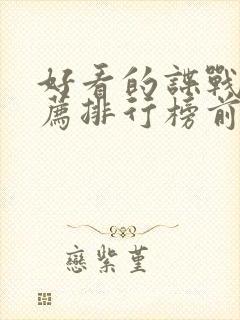 好看的諜戰
薦排行榜前
戀紫堇